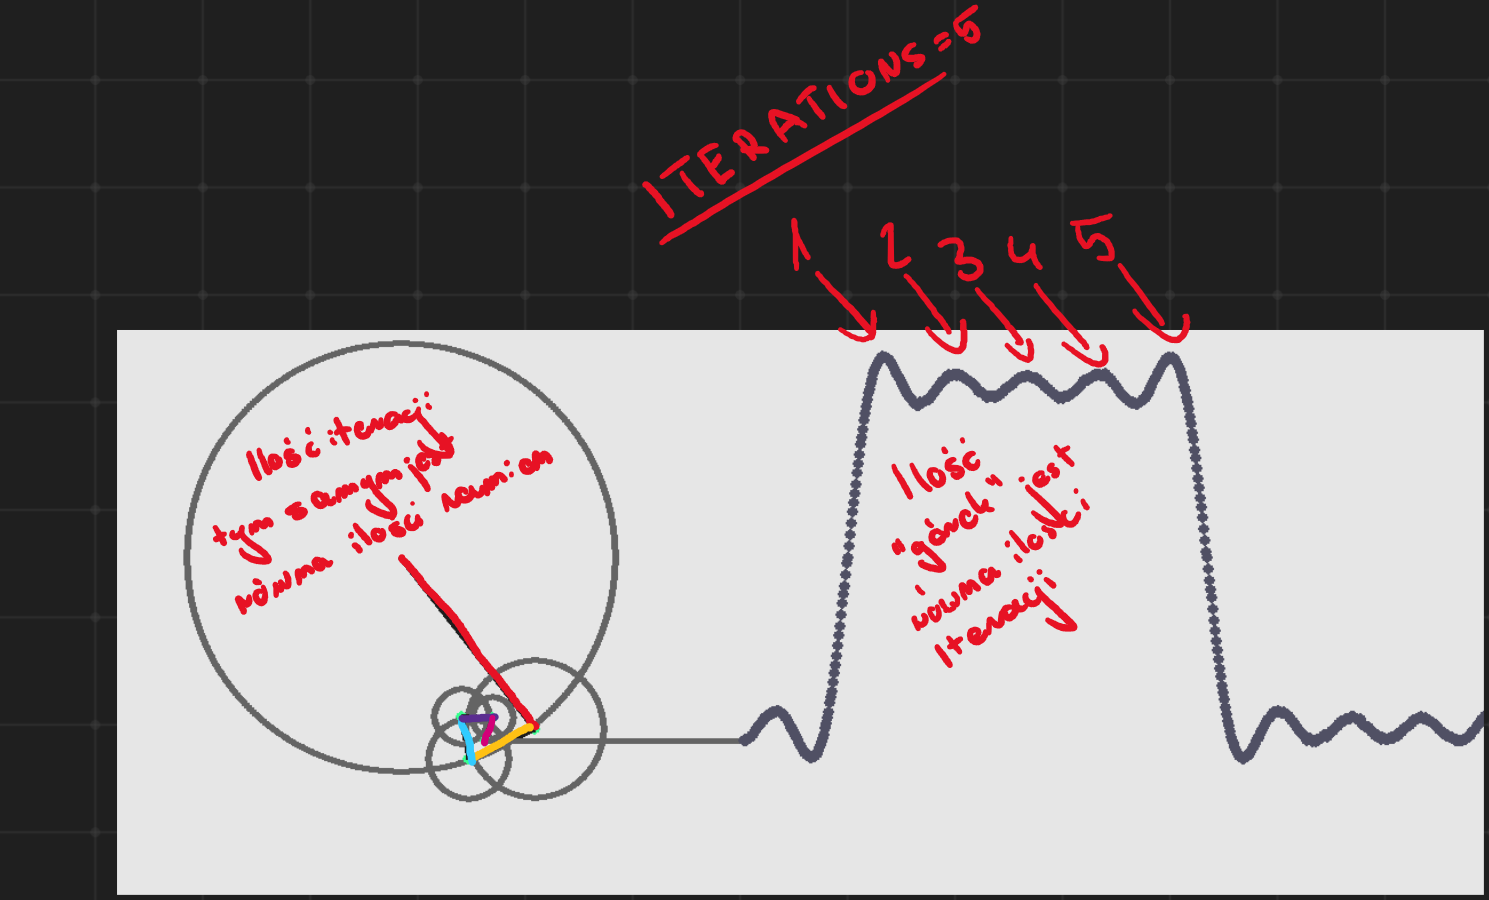 ITERATIONS = 5
1 2 3 4 5
Ilość iteracji
tym samym jest
równa ilości ramion
Ilość
"górek" jest
równa ilości
iteracji